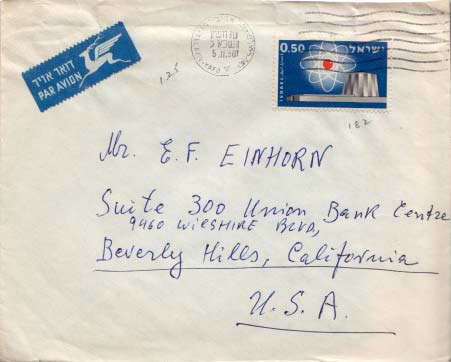 דואר אויר
PAR AVION
0.50
ישראל
ISRAEL
125
182
Mr. E. F. EINHORN
Suite 300 Union Bank Centre
9460 WILSHIRE BLVD,
Beverly Hills, California
U.S.A.